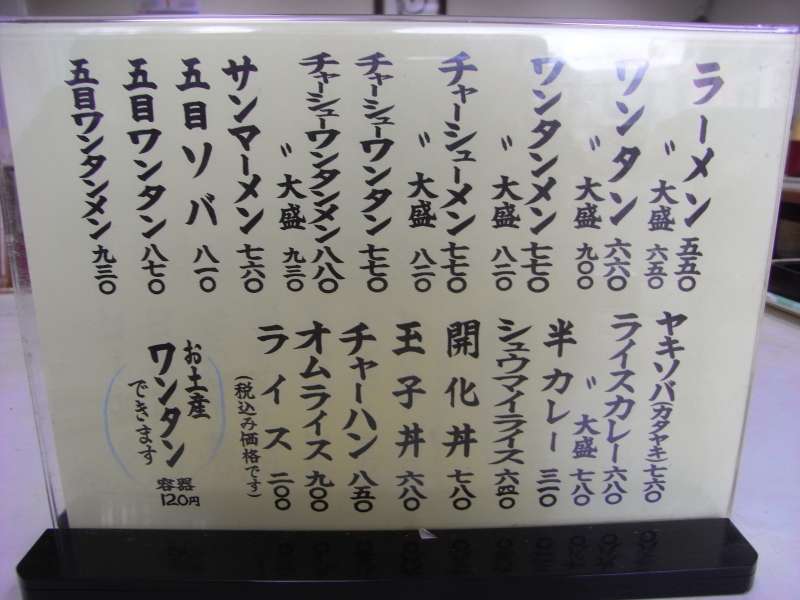 ラーメン 五五〇
〃 大盛 六五〇
ワンタン 六六〇
〃 大盛 九〇〇
ワンタンメン 七七〇
〃 大盛 八二〇
チャーシューメン 七七〇
〃 大盛 八二〇
チャーシューワンタン 七七〇
チャーシューワンタンメン 八八〇
〃 大盛 九三〇
サンマーメン 七六〇
五目ソバ 八一〇
五目ワンタン 八七〇
五目ワンタンメン 九三〇
ヤキソバ(カタヤキ) 七六〇
ライスカレー 六八〇
〃 大盛 七八〇
半カレー 三一〇
シュウマイライス 六四〇
開化丼 七八〇
玉子丼 六八〇
チャーハン 八五〇
オムライス 九〇〇
ライス 二〇〇
(税込み価格です)
お土産
ワンタン
できます
容器
120円